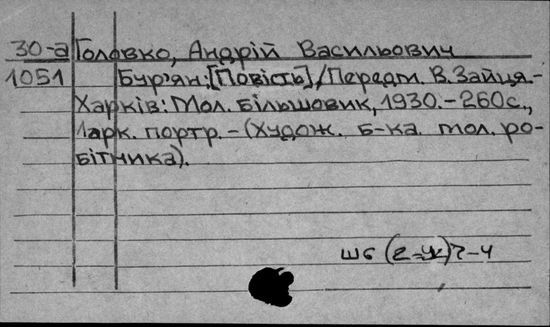 30-а Головко, Андрій Васильович
1051 Бур'ян: [Повість] / Передм. В. Зайця.-
Харків: Мол. більшовик, 1930.-260с.,
1арк. портр. - (Худож. б-ка мол. ро-
бітника).
шб (2=Ук)7-4